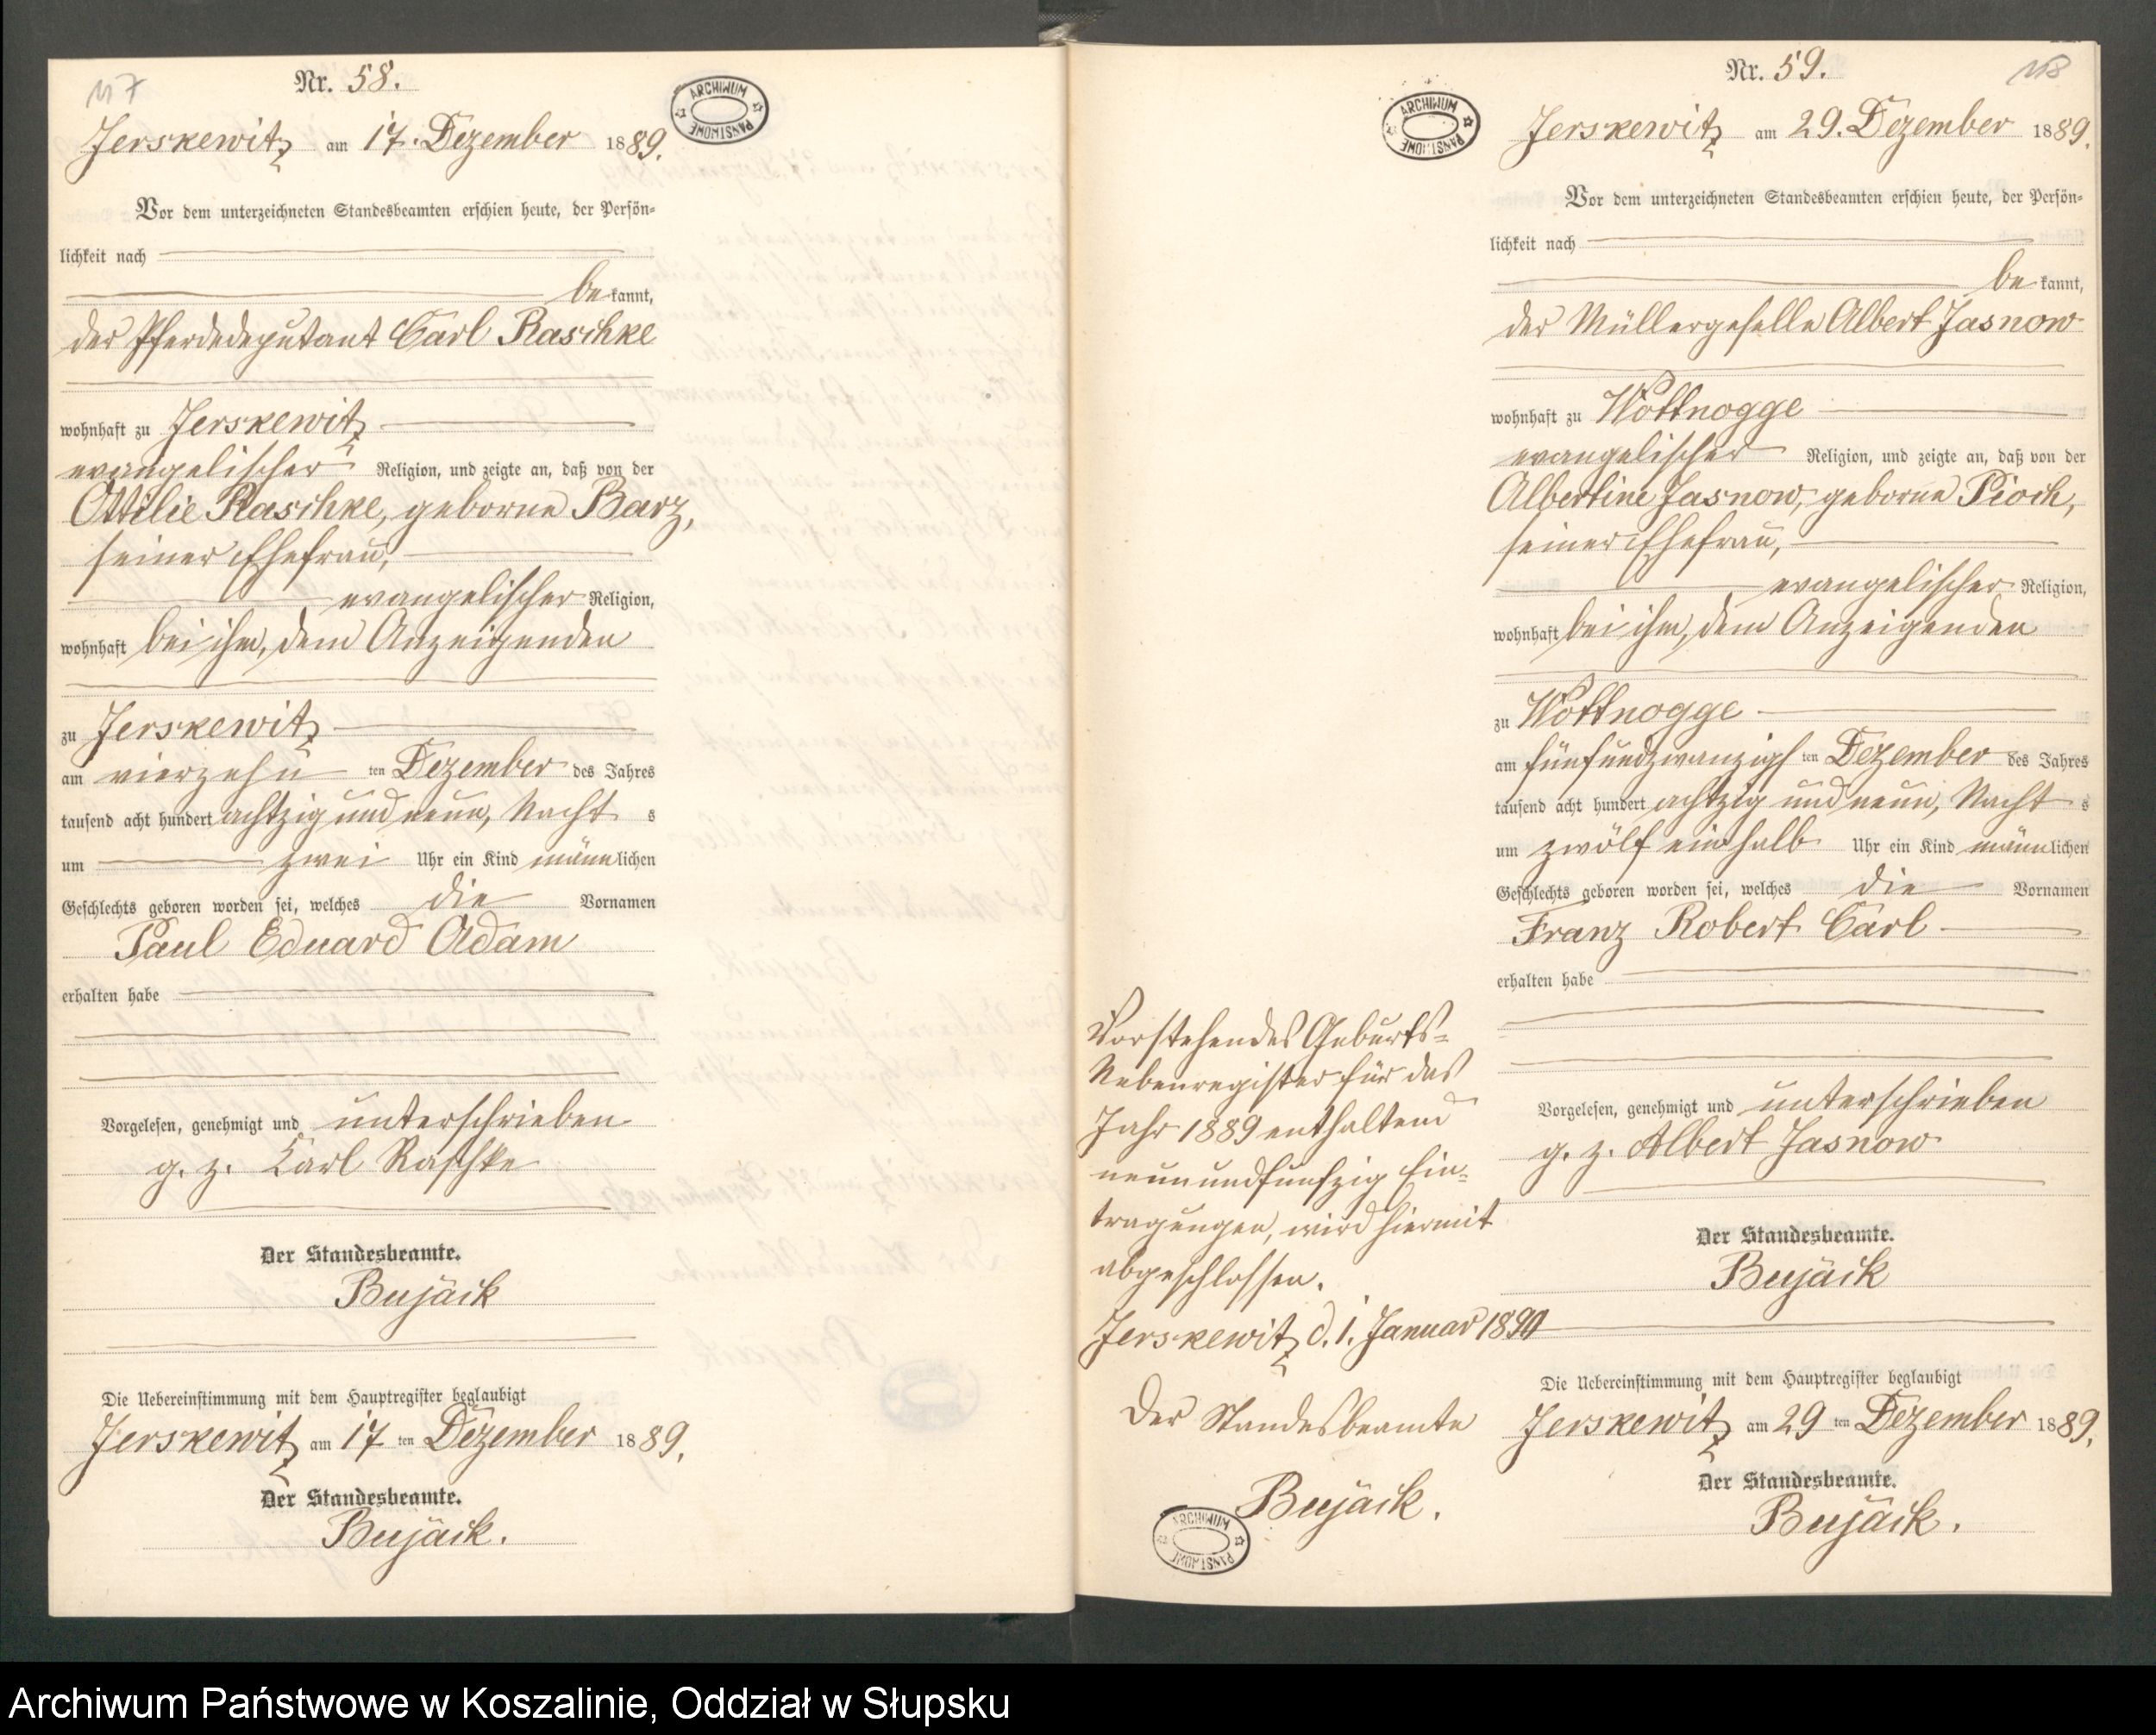 117
Nr. 58.
ARCHIWUM PAŃSTWOWE
Jerskewitz am 17. Dezember 1889.
Vor dem unterzeichneten Standesbeamten erschien heute, der Persön-
lichkeit nach
bekannt,
der Pferdedeputant Carl Raschke
wohnhaft zu Jerskewitz
evangelischer Religion, und zeigte an, daß von der
Ottilie Raschke, geborne Barz,
seiner Ehefrau,
evangelischer Religion,
wohnhaft bei ihm, dem Anzeigenden
zu Jerskewitz
am vierzehn ten Dezember des Jahres
tausend acht hundert achtzig und neun, Nacht s
um zwei Uhr ein Kind männlichen
Geschlechts geboren worden sei, welches die Vornamen
Paul Eduard Adam
erhalten habe
Vorgelesen, genehmigt und unterschrieben
g. z. Karl Raschke
Der Standesbeamte.
Bujäck
Die Uebereinstimmung mit dem Hauptregister beglaubigt
Jerskewitz am 17 ten Dezember 1889.
Der Standesbeamte.
Bujäck.
118
Nr. 59.
ARCHIWUM PAŃSTWOWE
Jerskewitz am 29. Dezember 1889.
Vor dem unterzeichneten Standesbeamten erschien heute, der Persön-
lichkeit nach
bekannt,
der Müllergeselle Albert Jasnow
wohnhaft zu Wottnogge
evangelischer Religion, und zeigte an, daß von der
Albertine Jasnow, geborne Pioch,
seiner Ehefrau,
evangelischer Religion,
wohnhaft bei ihm, dem Anzeigenden
zu Wottnogge
am fünfundzwanzigsten Dezember des Jahres
tausend acht hundert achtzig und neun, Nacht s
um zwölf einhalb Uhr ein Kind männlichen
Geschlechts geboren worden sei, welches die Vornamen
Franz Robert Carl
erhalten habe
Vorgelesen, genehmigt und unterschrieben
g. z. Albert Jasnow
Der Standesbeamte.
Bujäck
Die Uebereinstimmung mit dem Hauptregister beglaubigt
Jerskewitz am 29 ten Dezember 1889.
Der Standesbeamte.
Bujäck.
Vorstehendes Geburts-
Nebenregister für das
Jahr 1889 enthaltend
neunundfunfzig Ein-
tragungen, wird hiermit
abgeschlossen.
Jerskewitz d. 1. Januar 1890
Der Standesbeamte
Bujäck.
ARCHIWUM PAŃSTWOWE
Archiwum Państwowe w Koszalinie, Oddział w Słupsku